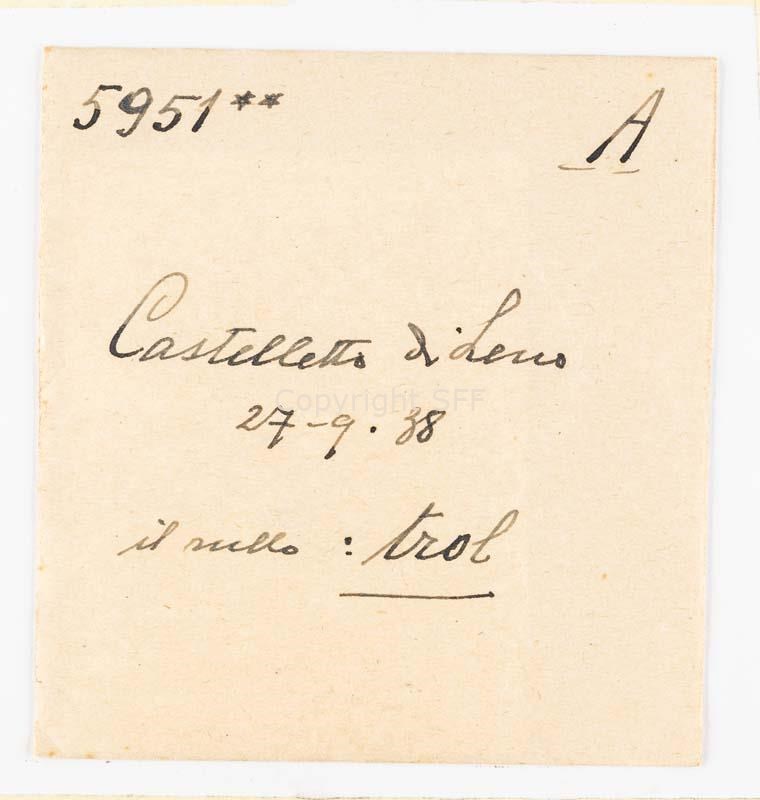 5951** A
Castelletto di Leno
Copyright SFF
27-9.38
il rullo : trol